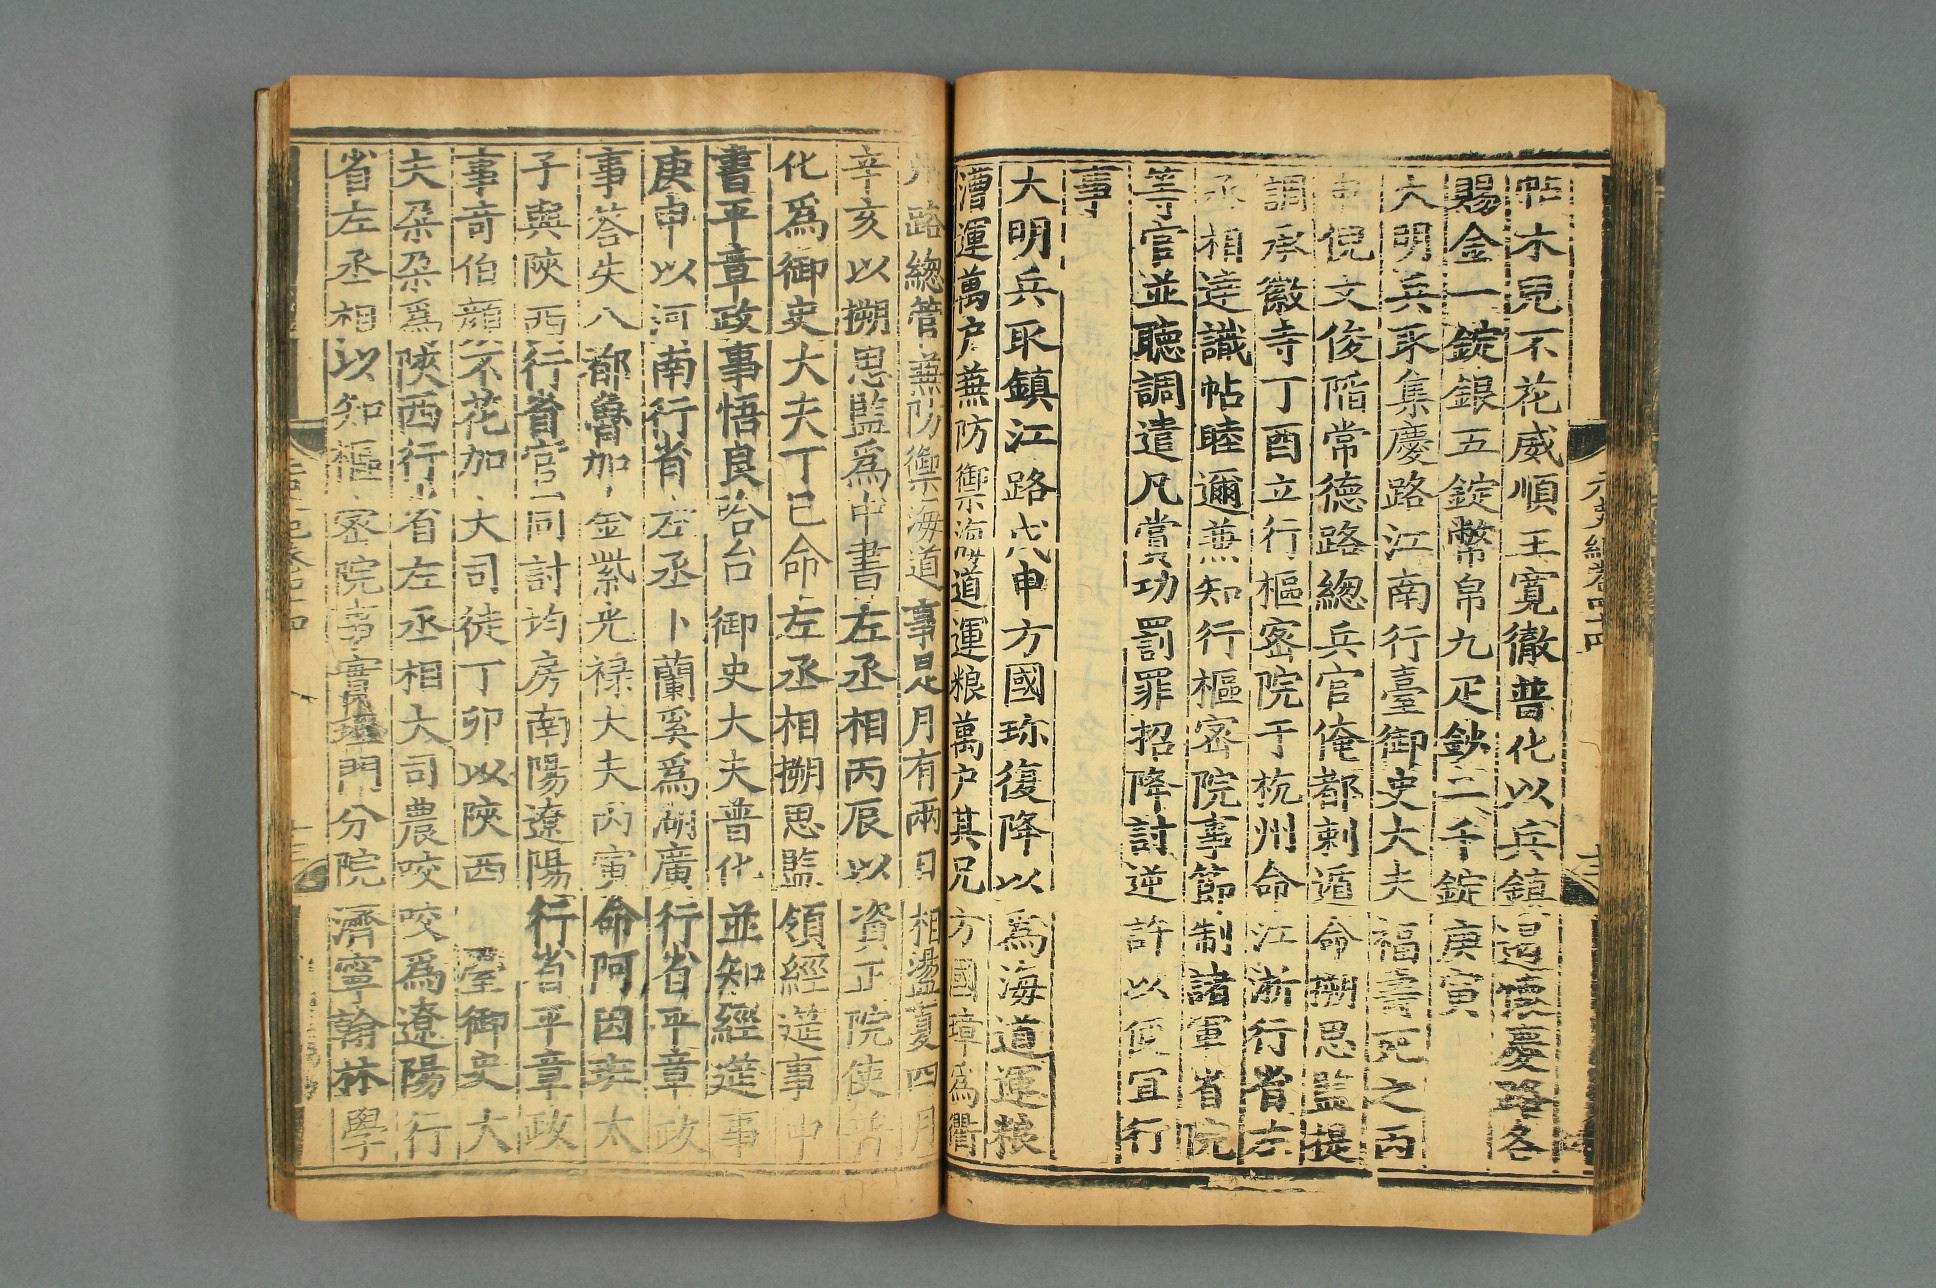 帖木兒不花威順王寬徹普化以兵鎮遏懷慶路各
賜金一錠銀五錠幣帛九疋鈔二千錠庚寅
大明兵取集慶路江南行臺御史大夫福壽死之丙
倪文俊陷常德路總兵官俺都剌遁命搠思監提
調承徽寺丁酉立行樞密院于杭州命江浙行省左
丞相達識帖睦邇兼知行樞密院事節制諸軍省院
等官並聽調遣凡賞功罰罪招降討逆許以便宜行
事
大明兵取鎮江路戊申方國珍復降以爲海道運糧
漕運萬户兼防御海道運粮萬户其兄方國璋爲衢
州路總管兼防禦海道事是月有兩日相盪夏四月
辛亥以搠思監爲中書左丞相丙辰以資正院使普
化爲御史大夫丁巳命左丞相搠思監領經筵事中
書平章政事悟良哈台御史大夫普化並知經筵事
庚申以河南行省左丞卜蘭奚爲湖廣行省平章政
事答失八都魯加金紫光禄大夫丙寅命阿因班太
子與陝西行省官同討均房南陽遼陽行省平章政
事奇伯顏不花加大司徒丁卯以陝西行臺御史大
夫朶朶爲陝西行省左丞相大司農咬咬爲遼陽行
省左丞相以知樞密院事實理門分院濟寧翰林學
元史本紀卷四十四